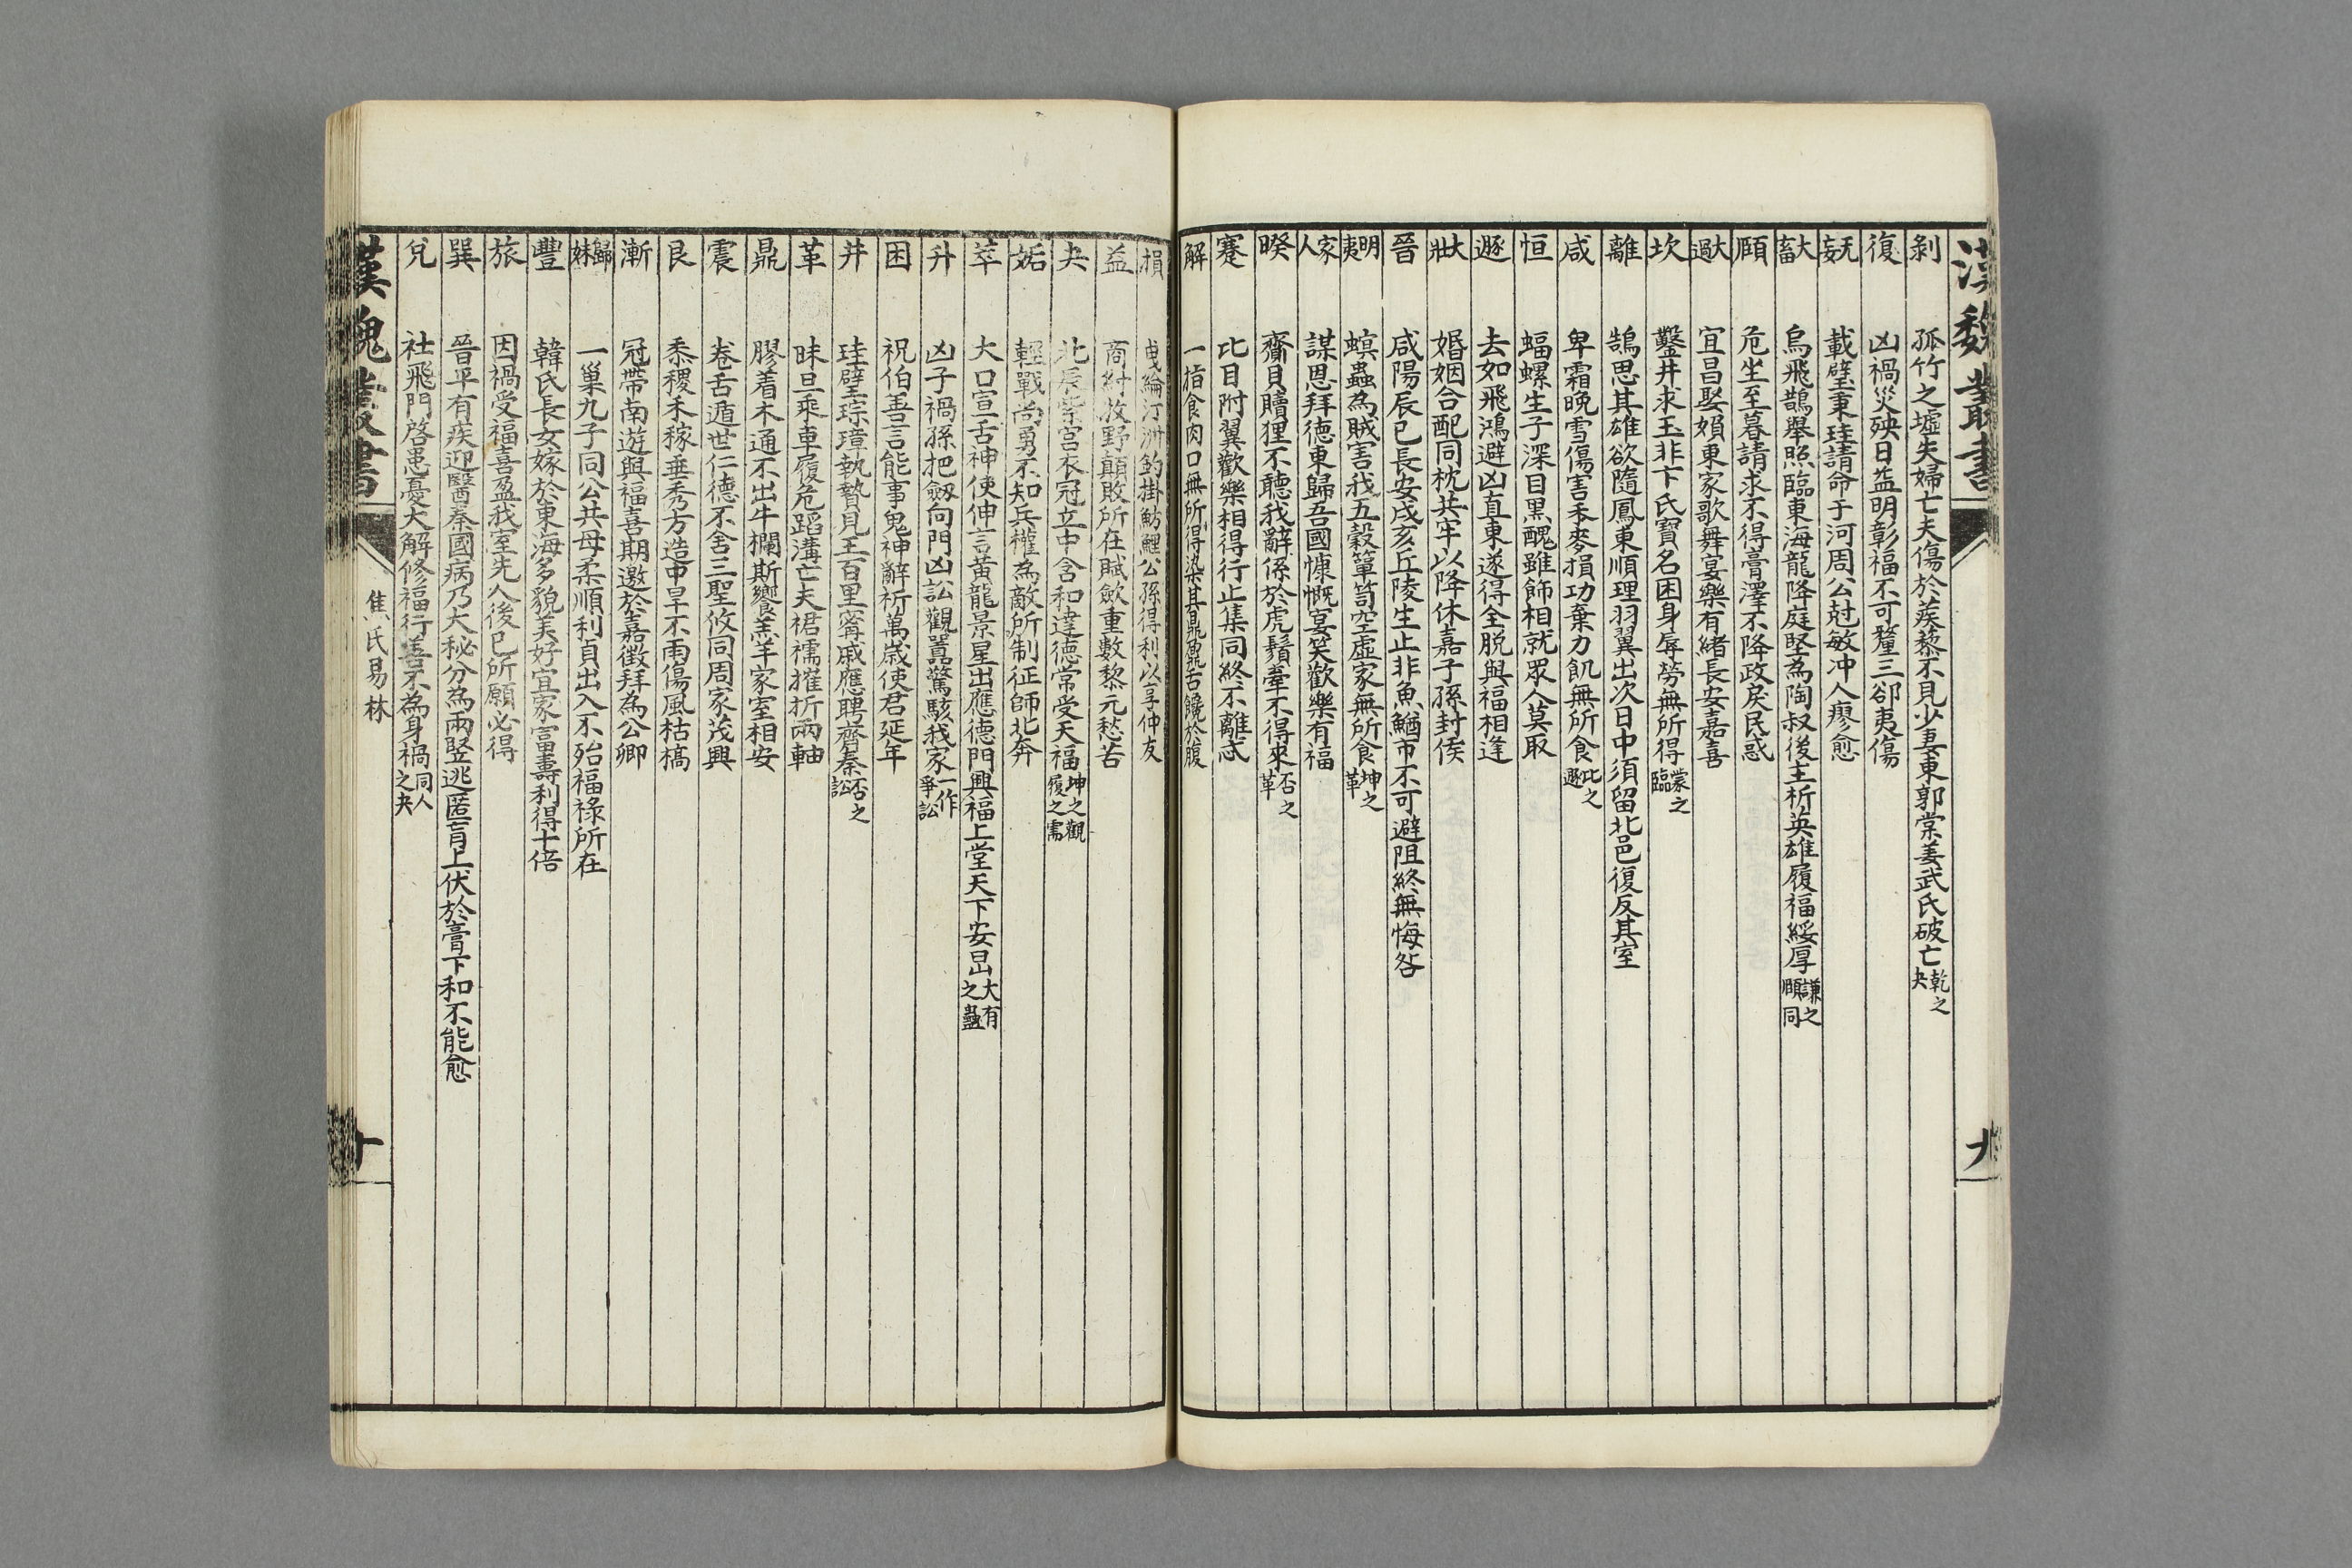 漢魏叢書
九
剝 孤竹之墟失婦亡夫傷於蒺藜不見少妻東郭棠姜武氏破亡乾之夬
復 凶禍災殃日益明彰福不可釐三郤夷傷
无妄 載璧秉珪請命于河周公尅敏冲人瘳愈
大畜 烏飛鵲舉照臨東海龍降庭堅為陶叔後主祈英雄履福綏厚謙之頤同
頤 危坐至暮請求不得膏澤不降政戾民惑
大過 宜昌娶婦東家歌舞宴樂有緒長安嘉喜
坎 鑿井求玉非卞氏寶名困身辱勞無所得蒙之臨
離 鵠思其雄欲隨鳳東順理羽翼出次日中須留北邑復反其室
咸 卑霜晚雪傷害禾麥損功棄力飢無所食比之遯
恒 蝠螺生子深目黑醜雖飾相就眾人莫取
遯 去如飛鴻避凶直東遂得全脫與福相逢
大壯 婚姻合配同枕共牢以降休嘉子孫封侯
晉 咸陽辰巳長安戌亥丘陵生止非魚鰌市不可避阻終無悔咎
明夷 螟蟲為賊害我五穀簞笥空虛家無所食坤之革
家人 謀恩拜德東歸吾國慷慨宴笑歡樂有福
睽 齎貝贖狸不聽我辭係於虎鬚牽不得來否之革
蹇 比目附翼歡樂相得行止集同終不離忒
解 一指食肉口無所得染其鼎鼐舌饞於腹
損 曳綸汀洲釣掛魴鯉公孫得利以享仲友
益 商紂牧野顛敗所在賦斂重數黎元愁苦
夬 北辰紫宮衣冠立中含和建德常受天福坤之觀履之需
姤 輕戰尚勇不知兵權為敵所制征師北奔
萃 大口宣舌神使伸言黃龍景星出應德門興福上堂天下安昌大有之蠱
升 凶子禍孫把劔向門凶訟觀囂驚駭我家一作爭訟
困 祝伯善言能事鬼神辭祈萬歲使君延年
井 珪璧琮璋執贄見王百里甯戚應聘齊秦否之訟
革 昧旦乘車履危蹈溝亡夫裙襦摧折兩軸
鼎 膠着木通不出牛欄斯饗羔羊家室相安
震 卷舌遁世仁德不舍三聖攸同周家茂興
艮 黍稷禾稼垂秀方造中旱不雨傷風枯槁
漸 冠帶南遊與福喜期邀於嘉徵拜為公卿
歸妹 一巢九子同公共母柔順利貞出入不殆福祿所在
豐 韓氏長女嫁於東海多貌美好宜家富壽利得十倍
旅 因禍受福喜盈我室先人後已所願必得
巽 晉平有疾迎醫秦國病乃大秘分為兩竪逃匿肓上伏於膏下和不能愈
兌 社飛門啓患憂大解修福行善不為身禍同人之夬
漢魏叢書
焦氏易林
十